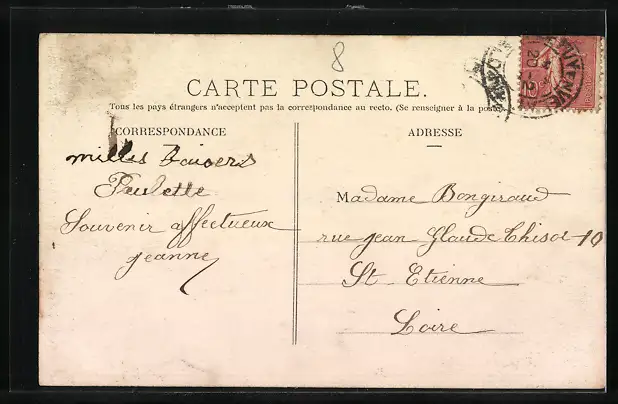 8
CARTE POSTALE.
Tous les pays étrangers n'acceptent pas la correspondance au recto. (Se renseigner à la poste)
CORRESPONDANCE
ADRESSE
milles Baisers
Paulette
Souvenir affectueux
Jeanne
Madame Bongiraud
rue Jean Glaude Thisot 10
St. Etienne
Loire